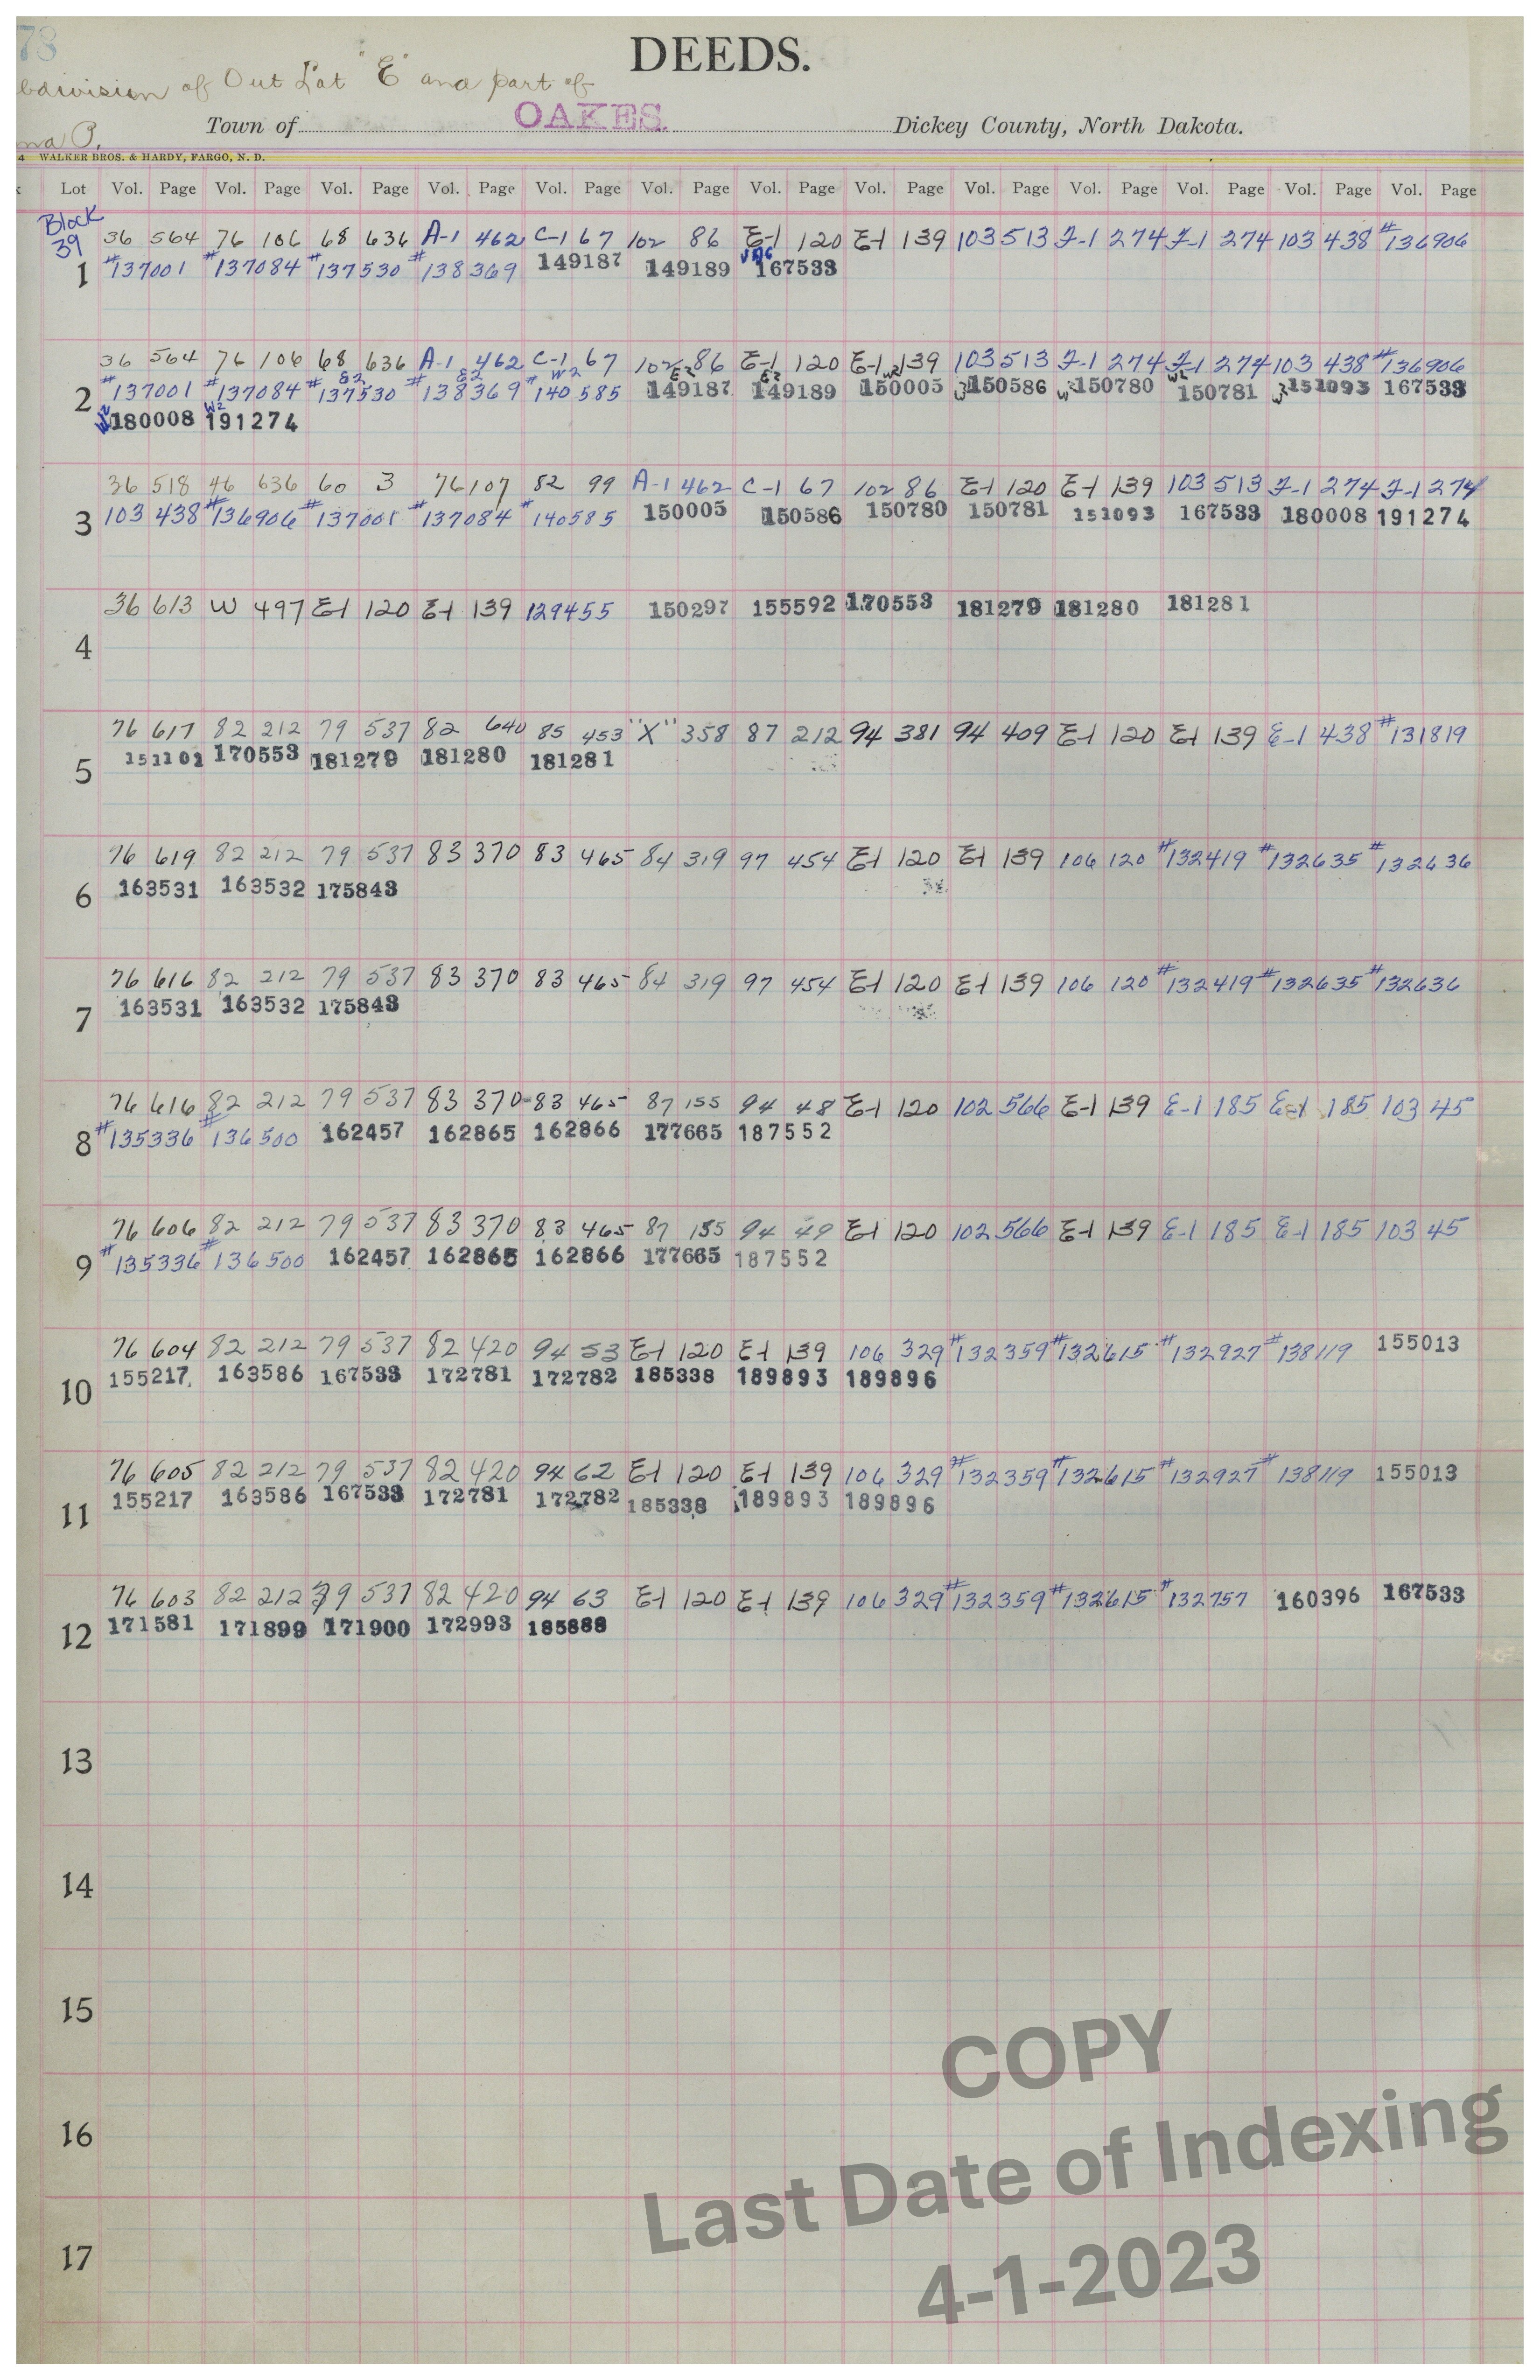 78
DEEDS.
bdivision of Out Lot "E" and part of
Town of OAKES. Dickey County, North Dakota.
na P.
4 WALKER BROS. & HARDY, FARGO, N. D.
Lot Vol. Page Vol. Page Vol. Page Vol. Page Vol. Page Vol. Page Vol. Page Vol. Page Vol. Page Vol. Page Vol. Page Vol. Page Vol. Page
Block
39
36 564 76 106 68 636 A-1 462 C-1 67 102 86 E-1 120 E-1 139 103 513 F-1 274 F-1 274 103 438 #136906
1 #137001 #137084 #137530 #138369 149187 149189 167533
36 564 76 106 68 636 A-1 462 C-1 67 102 86 E-1 120 E-1 139 103 513 F-1 274 F-1 274 103 438 #136906
E2 E2 W2 E2 E2 W2 W2
2 #137001 #137084 #137530 #138369 #140585 149187 149189 150005 150586 150780 150781 151093 167533
W2
180008 191274
36 518 46 636 60 3 76 107 82 99 A-1 462 C-1 67 102 86 E-1 120 E-1 139 103 513 F-1 274 F-1 274
3 103 438 #136906 #137001 #137084 #140585 150005 150586 150780 150781 151093 167533 180008 191274
36 613 W 497 E-1 120 E-1 139 129455 150297 155592 170553 181279 181280 181281
4
76 617 82 212 79 537 82 640 85 453 "X" 358 87 212 94 381 94 409 E-1 120 E-1 139 E-1 438 #131819
5 151101 170553 181279 181280 181281
76 619 82 212 79 537 83 370 83 465 84 319 97 454 E-1 120 E-1 139 106 120 #132419 #132635 #132636
6 163531 163532 175843
76 616 82 212 79 537 83 370 83 465 84 319 97 454 E-1 120 E-1 139 106 120 #132419 #132635 #132636
7 163531 163532 175843
76 616 82 212 79 537 83 370 83 465 87 155 94 48 E-1 120 102 566 E-1 139 E-1 185 E-1 185 103 45
8 #135336 #136500 162457 162865 162866 177665 187552
76 606 82 212 79 537 83 370 83 465 87 155 94 49 E-1 120 102 566 E-1 139 E-1 185 E-1 185 103 45
9 #135336 #136500 162457 162865 162866 177665 187552
76 604 82 212 79 537 82 420 94 53 E-1 120 E-1 139 106 329 #132359 #132615 #132927 #138119 155013
10 155217 163586 167533 172781 172782 185338 189893 189896
76 605 82 212 79 537 82 420 94 62 E-1 120 E-1 139 106 329 #132359 #132615 #132927 #138119 155013
11 155217 163586 167533 172781 172782 185338 189893 189896
76 603 82 212 79 537 82 420 94 63 E-1 120 E-1 139 106 329 #132359 #132615 #132757 160396 167533
12 171581 171899 171900 172993 185888
13
14
15
16
17
COPY
Last Date of Indexing
4-1-2023